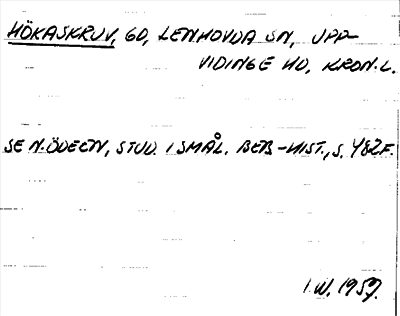 HÖKASKRUV, GD, LENHOVDA SN, UPP-
VIDINGE HD, KRON.L.
SE N. ÖDEEN, STUD. I SMÅL. BEB-HIST., S. 482F.
I.W. 1959.